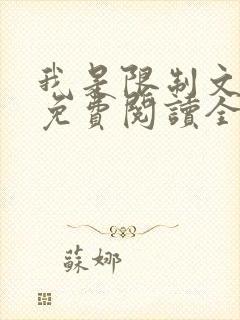 我是限制文
免費閱讀全
蘇娜